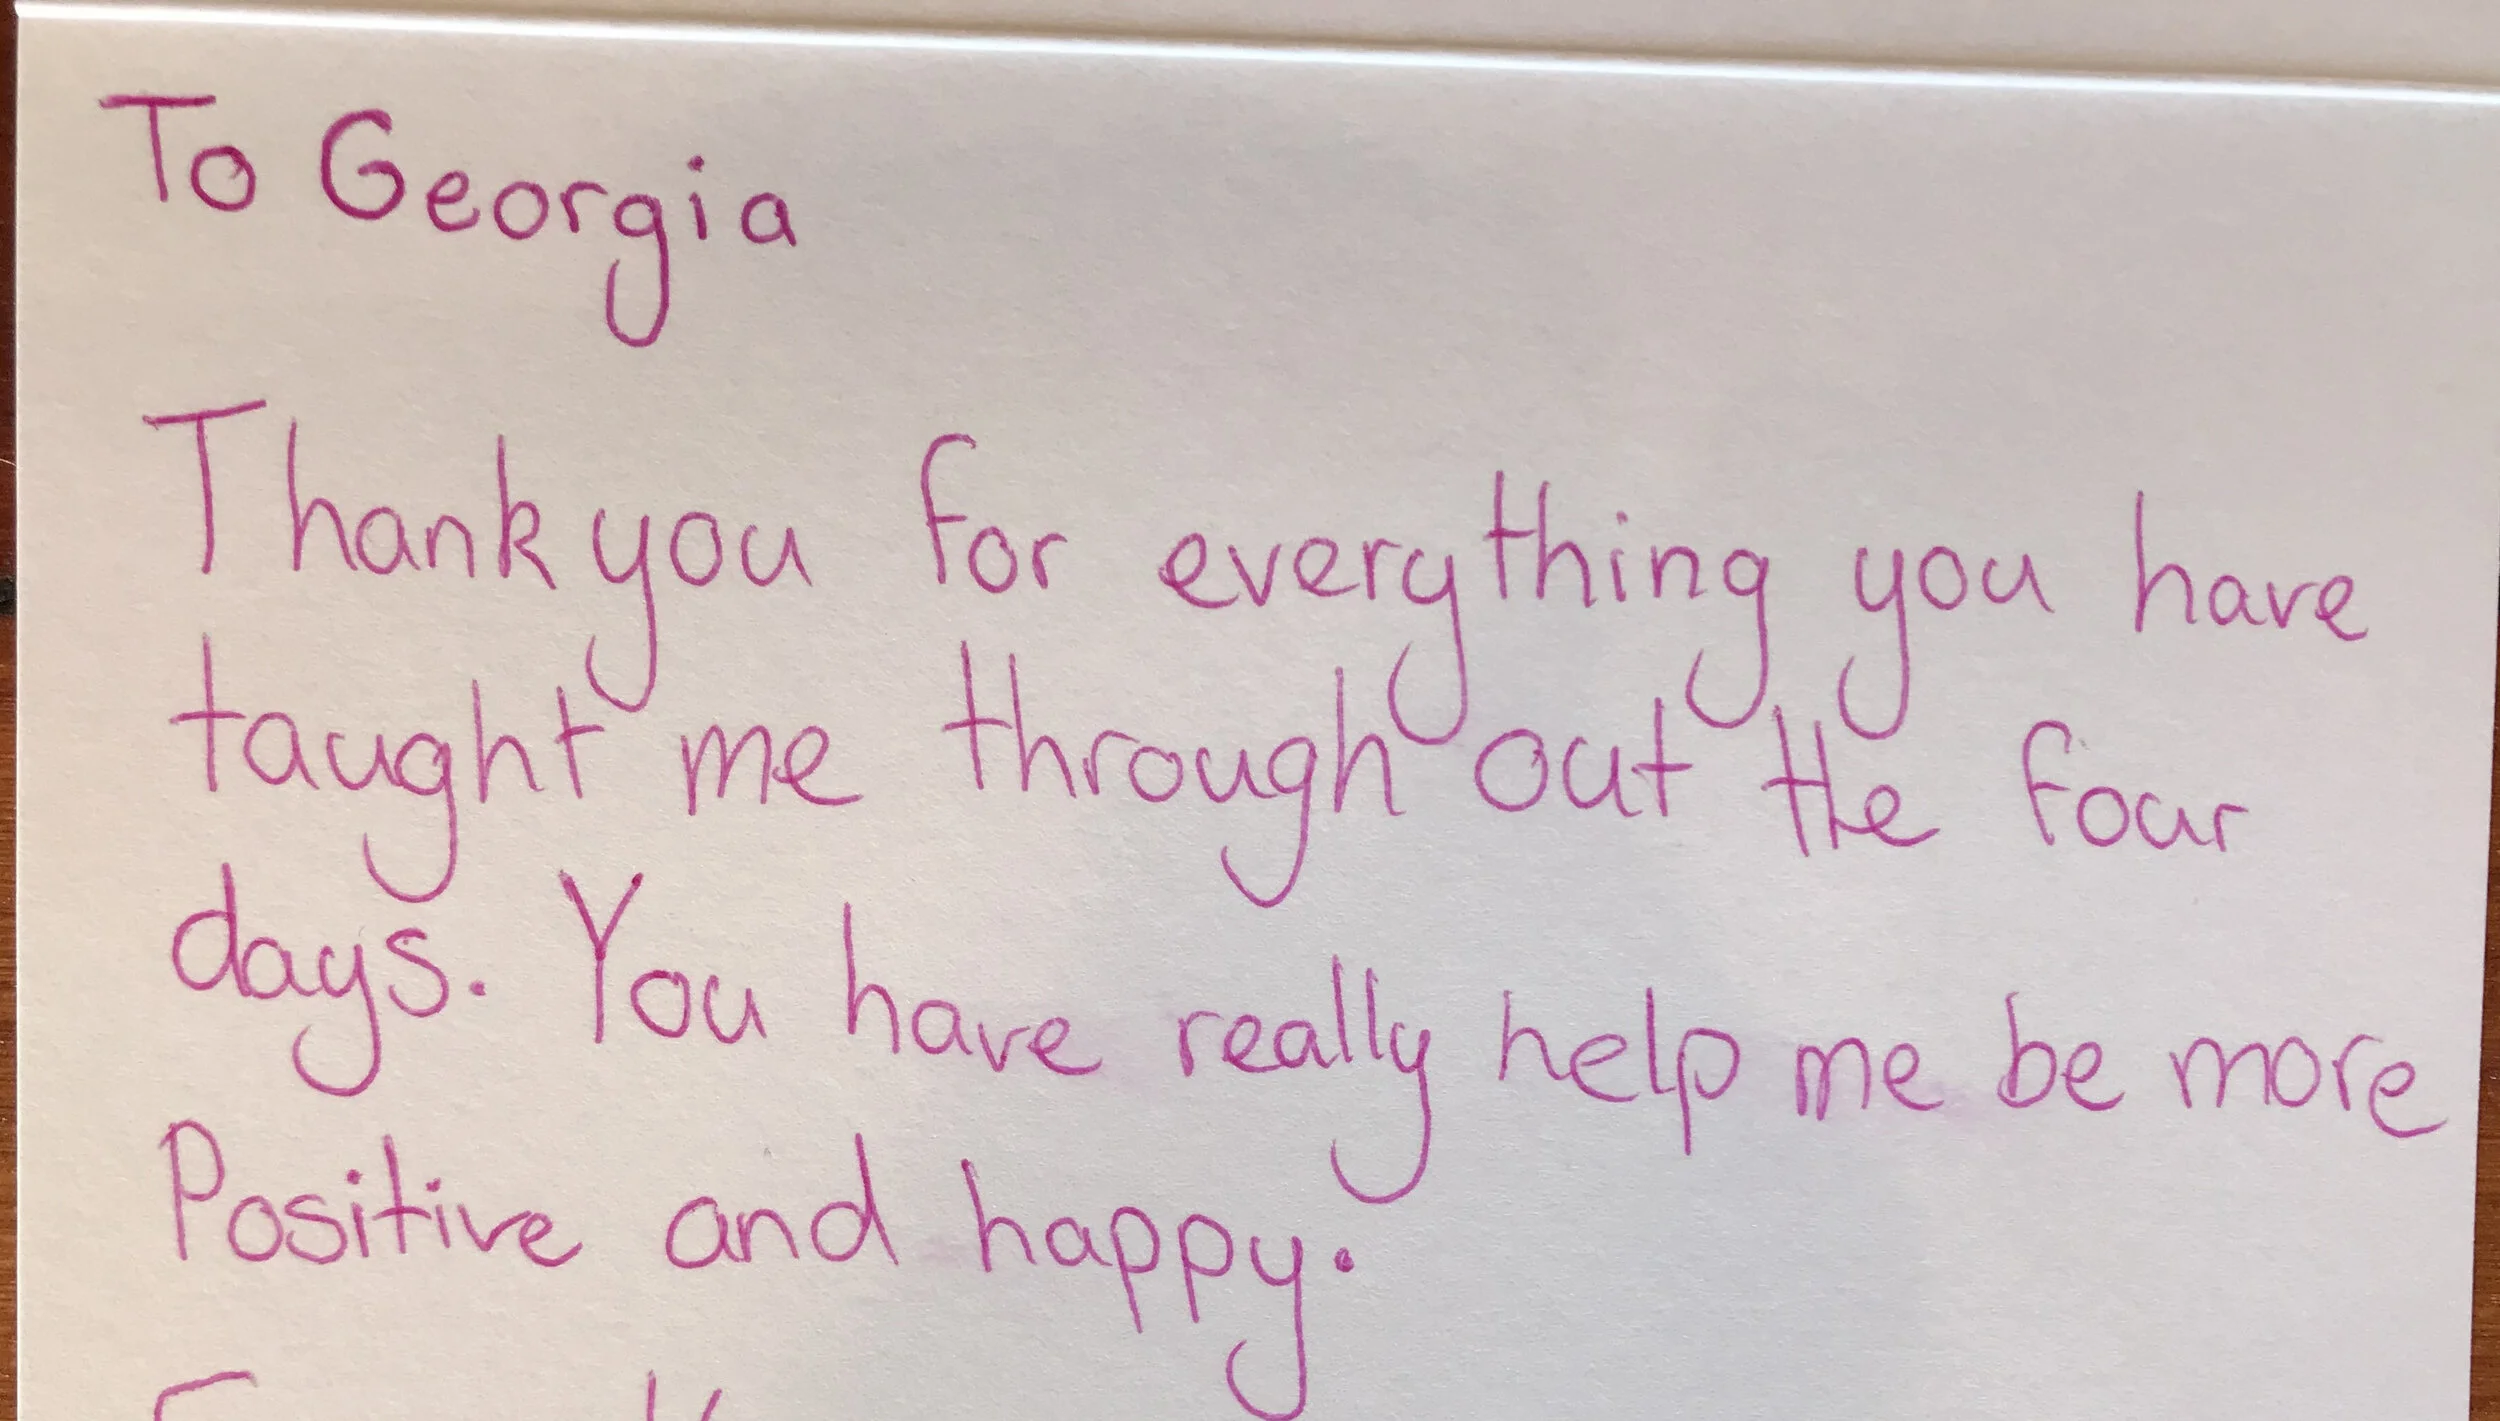 To Georgia
Thank you for everything you have
taught me through out the four
days. You have really help me be more
Positive and happy.